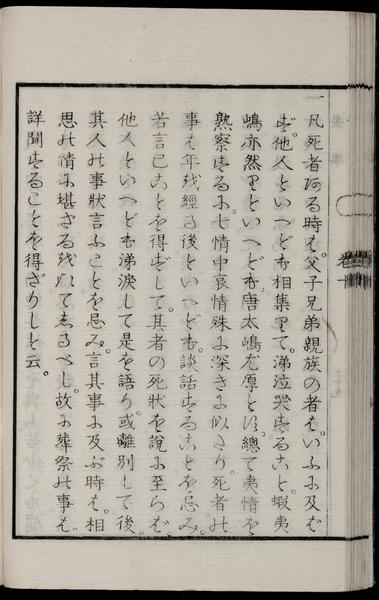 一凡死者ある時は。父子兄弟親族の者は。いふに及ば
ず。他人といへども。相集りて。涕泣哭することと。蝦夷
嶋亦然りといへども。唐太嶋尤厚とす。總て夷情を
熟察するに。七情中哀情殊に深きに似たり。死者の
事は年残經る後といへども。談話することを忌み。
若言已ことを得ずして。其者の死状を說に至らば。
他人といへども涕涙して是を語り。或離別して後。
其人の事狀言ふことを忌み。言其事に及ぶ時は。相
思の情に堪ざる残以て志るべし。故に葬祭の事は。
詳聞することを得ざりしと云。